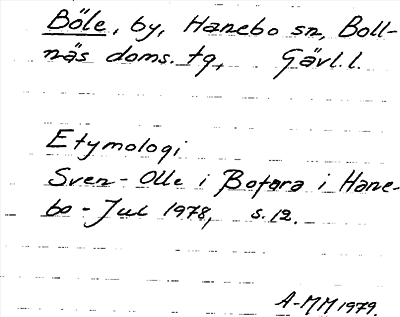 Böle, by, Hanebo sn, Boll-
näs doms. tg, Gävl. l.
Etymologi
Sven-Olle i Bofara i Hane-
bo-Jul 1978, s. 12.
A-MM 1979.